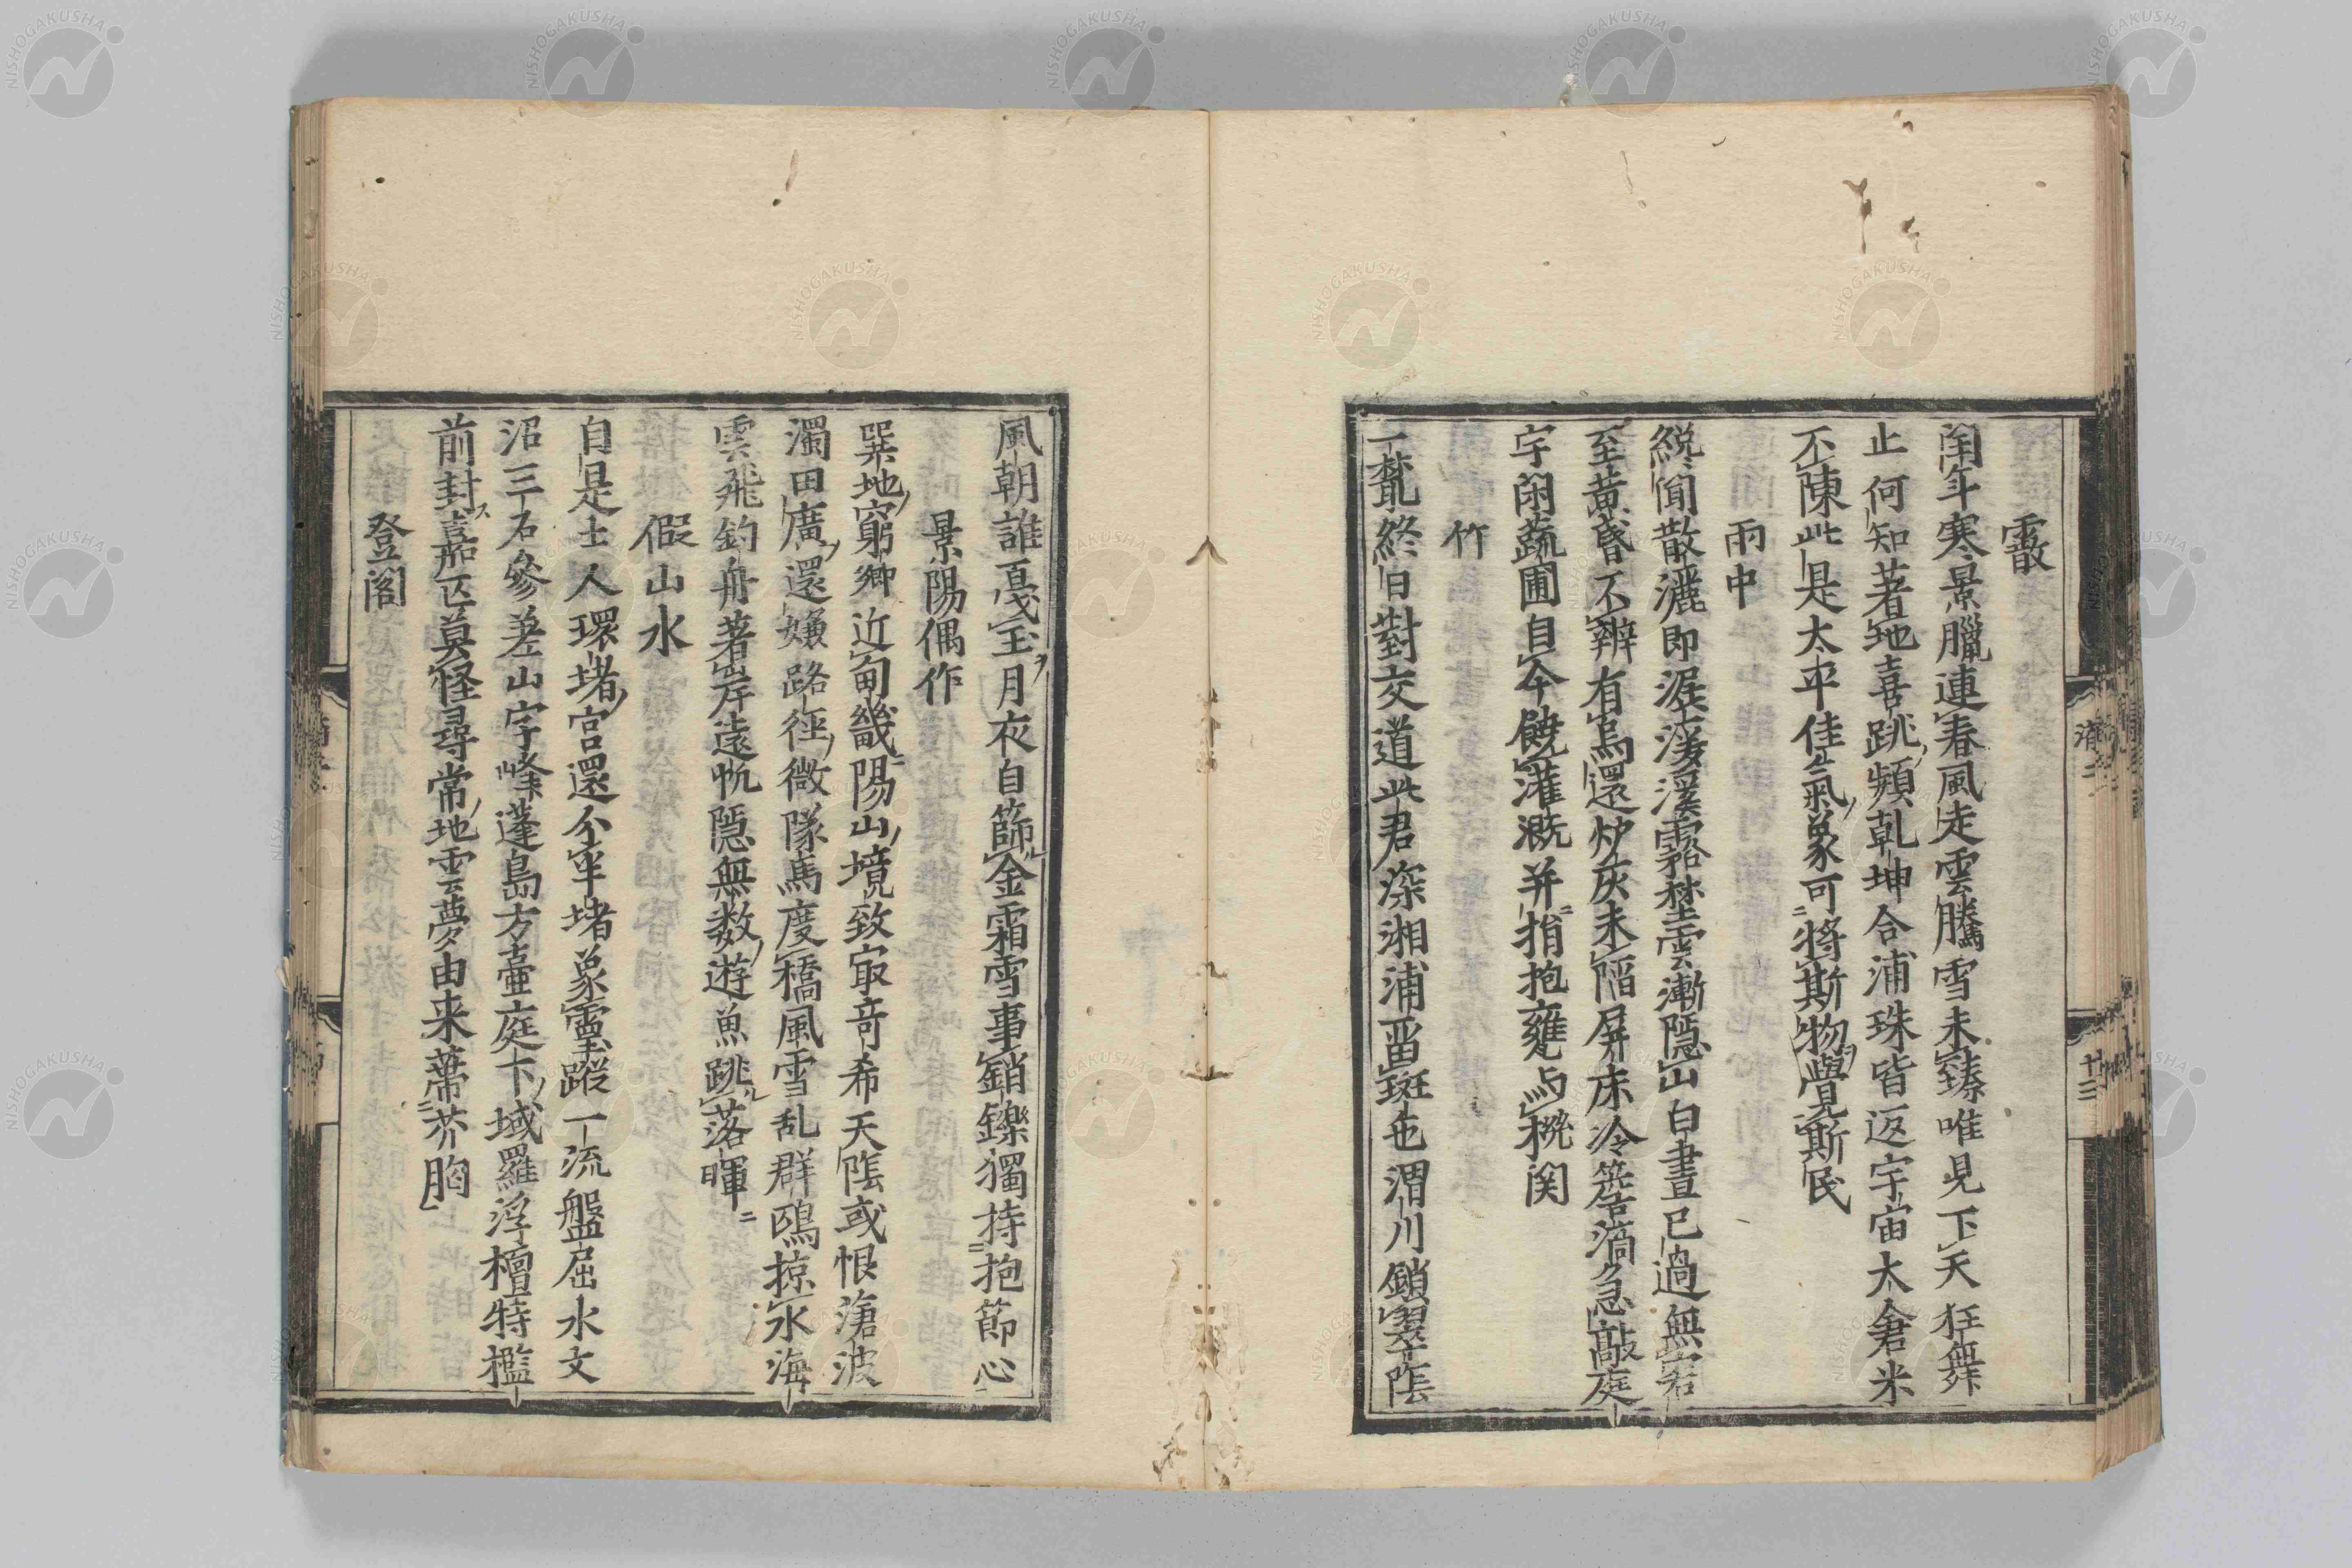 霰
閏年寒景臘連春風走雲騰雪未臻唯見下天狂舞
止何知著地喜跳頻乾坤合浦珠皆返宇宙太倉米
不陳此是太平佳氣象可將斯物覺斯民
雨中
纔聞散灑即涙溪霧埜雲漸隱山白晝已過無客
至黃昏不辨有烏還炉灰未陷屏床冷簷滴多急敲庭
宇閑蔬圃自今饒灌漑并捐抱甕与機関
竹
一叢終日對交道此君深湘浦畱斑也渭川鎖翠陰
風朝誰戞玉月夜自篩金霜雪事銷鑠獨持抱節心
景陽偶作
巽地窮鄉近甸畿陽山境致冣竒希天陰或恨滄波
濁田廣還嫌路徑微隊馬度橋風雪乱群鷗掠水海
雲飛釣舟著岸遠帆隱無数遊魚跳落暉
假山水
自是士人環堵宮還分軍堵象靈蹤一流盤屈水文
沼三石參差山字峰蓬島方壷庭下域羅浮檀特檻
前封嘉匹莫怪尋常地雲夢由来蔕芥胸
登閣
十三
NISHOGAKUSHA